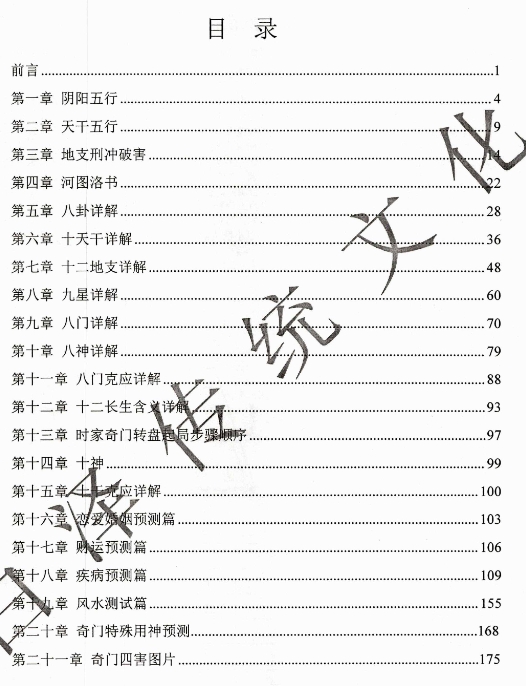 目 录
前言...1
第一章 阴阳五行...4
第二章 天干五行...9
第三章 地支刑冲破害...14
第四章 河图洛书...22
第五章 八卦详解...28
第六章 十天干详解...36
第七章 十二地支详解...48
第八章 九星详解...60
第九章 八门详解...70
第十章 八神详解...79
第十一章 八门克应详解...88
第十二章 十二长生含义详解...93
第十三章 时家奇门转盘起局步骤顺序...97
第十四章 十神...99
第十五章 十干克应详解...100
第十六章 恋爱婚姻预测篇...103
第十七章 财运预测篇...106
第十八章 疾病预测篇...109
第十九章 风水测试篇...155
第二十章 奇门特殊用神预测...168
第二十一章 奇门四害图片...175
泽传统文化